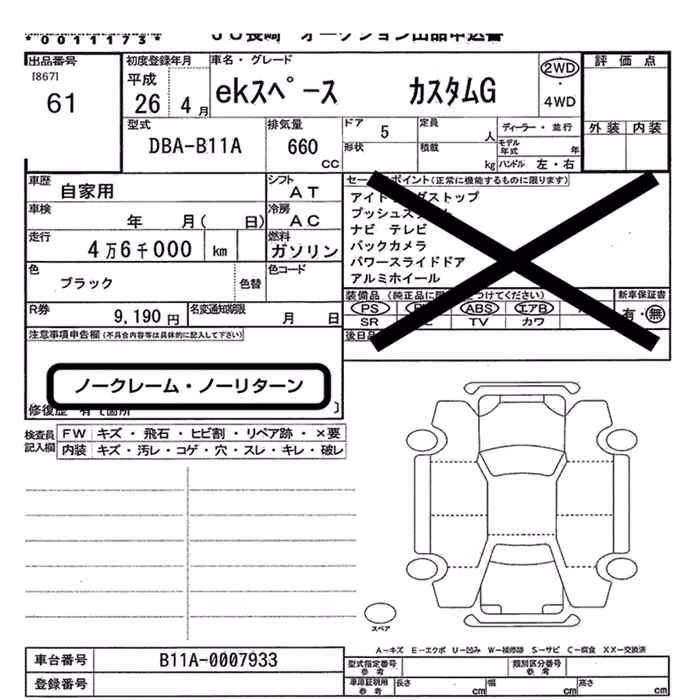 *0011173*
JU長崎 オークション出品申込書
出品番号
[867]
61
初度登録年月
平成
26 4月
車名・グレード
ekスペース カスタムG
2WD
・
4WD
評価点
外装 内装
型式
DBA-B11A
排気量
660
CC
ドア 5
定員 人
ディーラー・並行
形状
積載 kg
モデル年式 年
ハンドル 左・右
車歴
自家用
シフト
AT
車検
年 月( 日)
冷房
AC
走行
4万6千000 km
燃料
ガソリン
色
ブラック
色替
色コード
R券
9,190円
名変通知期限
月 日
セールスポイント(正常に機能するものに限ります)
アイドリングストップ
プッシュスタート
ナビ テレビ
バックカメラ
パワースライドドア
アルミホイール
装備品 (純正品に限 つけてください)
新車保証書
PS ABS エアB
有・無
SR TV カワ
後日品
注意事項申告欄(不具合内容等は具体的に記入して下さい)
ノークレーム・ノーリターン
修復歴 有〔箇所 〕
検査員記入欄
FW キズ・飛石・ヒビ割・リペア跡・×要
内装 キズ・汚レ・コゲ・穴・スレ・キレ・破レ
スペア
A−キズ E−エクボ U−凹み W−補修跡 S−サビ C−腐食 XX−交換済
車台番号
B11A-0007933
登録番号
型式指定番号
参考
類別区分番号
参考
車庫証明用
参考
長さ cm 幅 cm 高さ cm